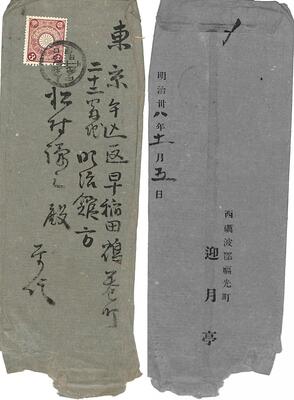 東京牛込区早稲田鶴巻町
二十二番地
明治館方
松村
殿
平信
明治卅八年十一月五日
西礪波郡福光町
迎月亭